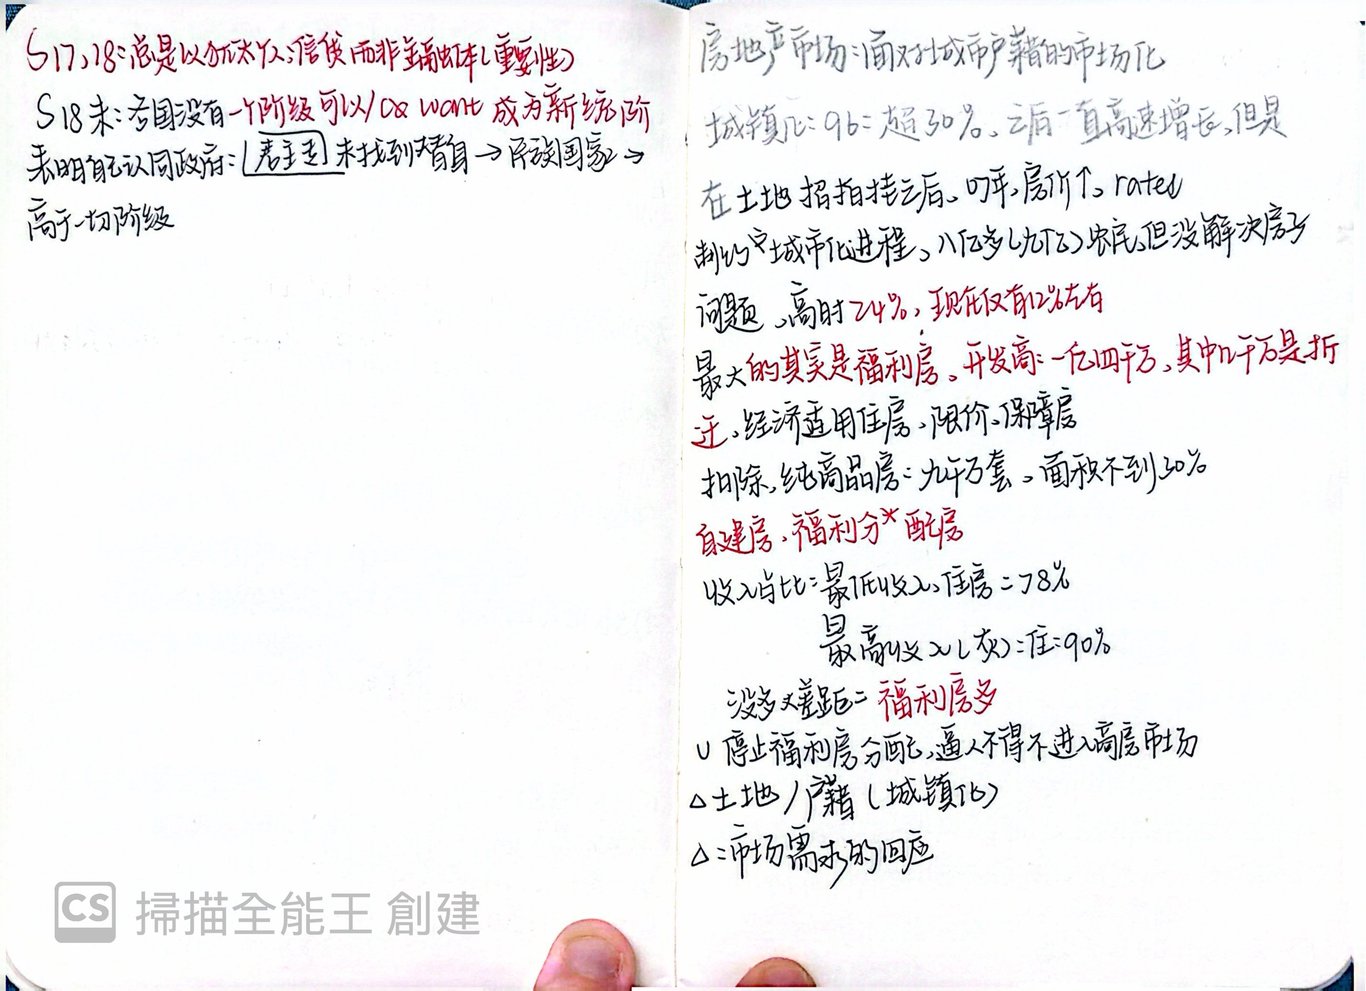 S17、18:总是以犹太人、信贷而非金融资本(重要性)
S18末:各国没有一个阶级可以/or want 成为新统阶
表明自己认同政府:君主国 未找到替身→民族国家→
高于一切阶级
房地产市场:面对城市户籍的市场化
城镇化:96:超30%、之后一直高速增长,但是
在土地招拍挂之后、叼年,房价↑,rates
制约中城市化进程、八亿多(九亿)农民,但没解决房子
问题、高时24%,现在仅有12%左右
最大的其实是福利房、开发商:一亿四千万,其中几千万是拆
迁、经济适用住房、限价、保障房
扣除,纯商品房:九千万套。面积不到30%
自建房、福利分*配房
收入占比:最低收入、住房:78%
最高收入(灰):住:90%
没多大差距=福利房多
∪ 停止福利房分配,逼人不得不进入商房市场
△土地/户籍(城镇化)
△:市场需求的回应
CS 掃描全能王 創建